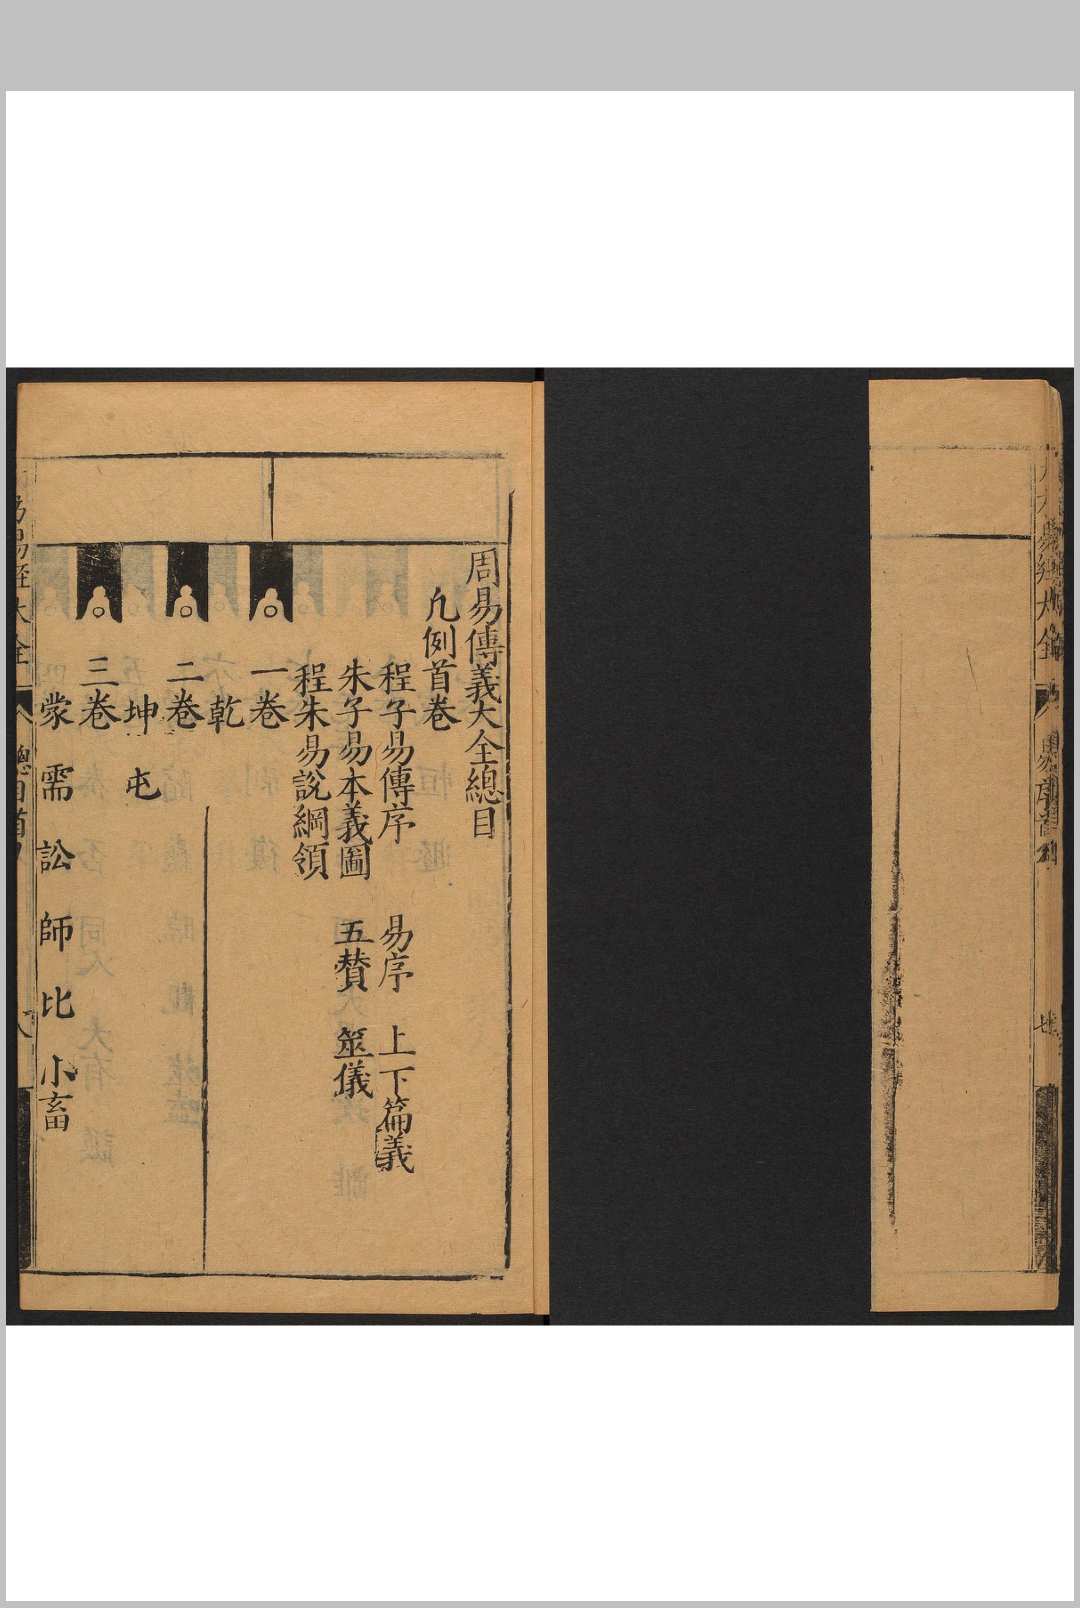 周易傳義大全總目
凡例首卷
程子易傳序 易序 上下篇義
朱子易本義圖 五贊 筮儀
程朱易說綱領
一卷
乾
二卷
坤 屯
三卷
蒙 需 訟 師 比 小畜
易經大全 總目首